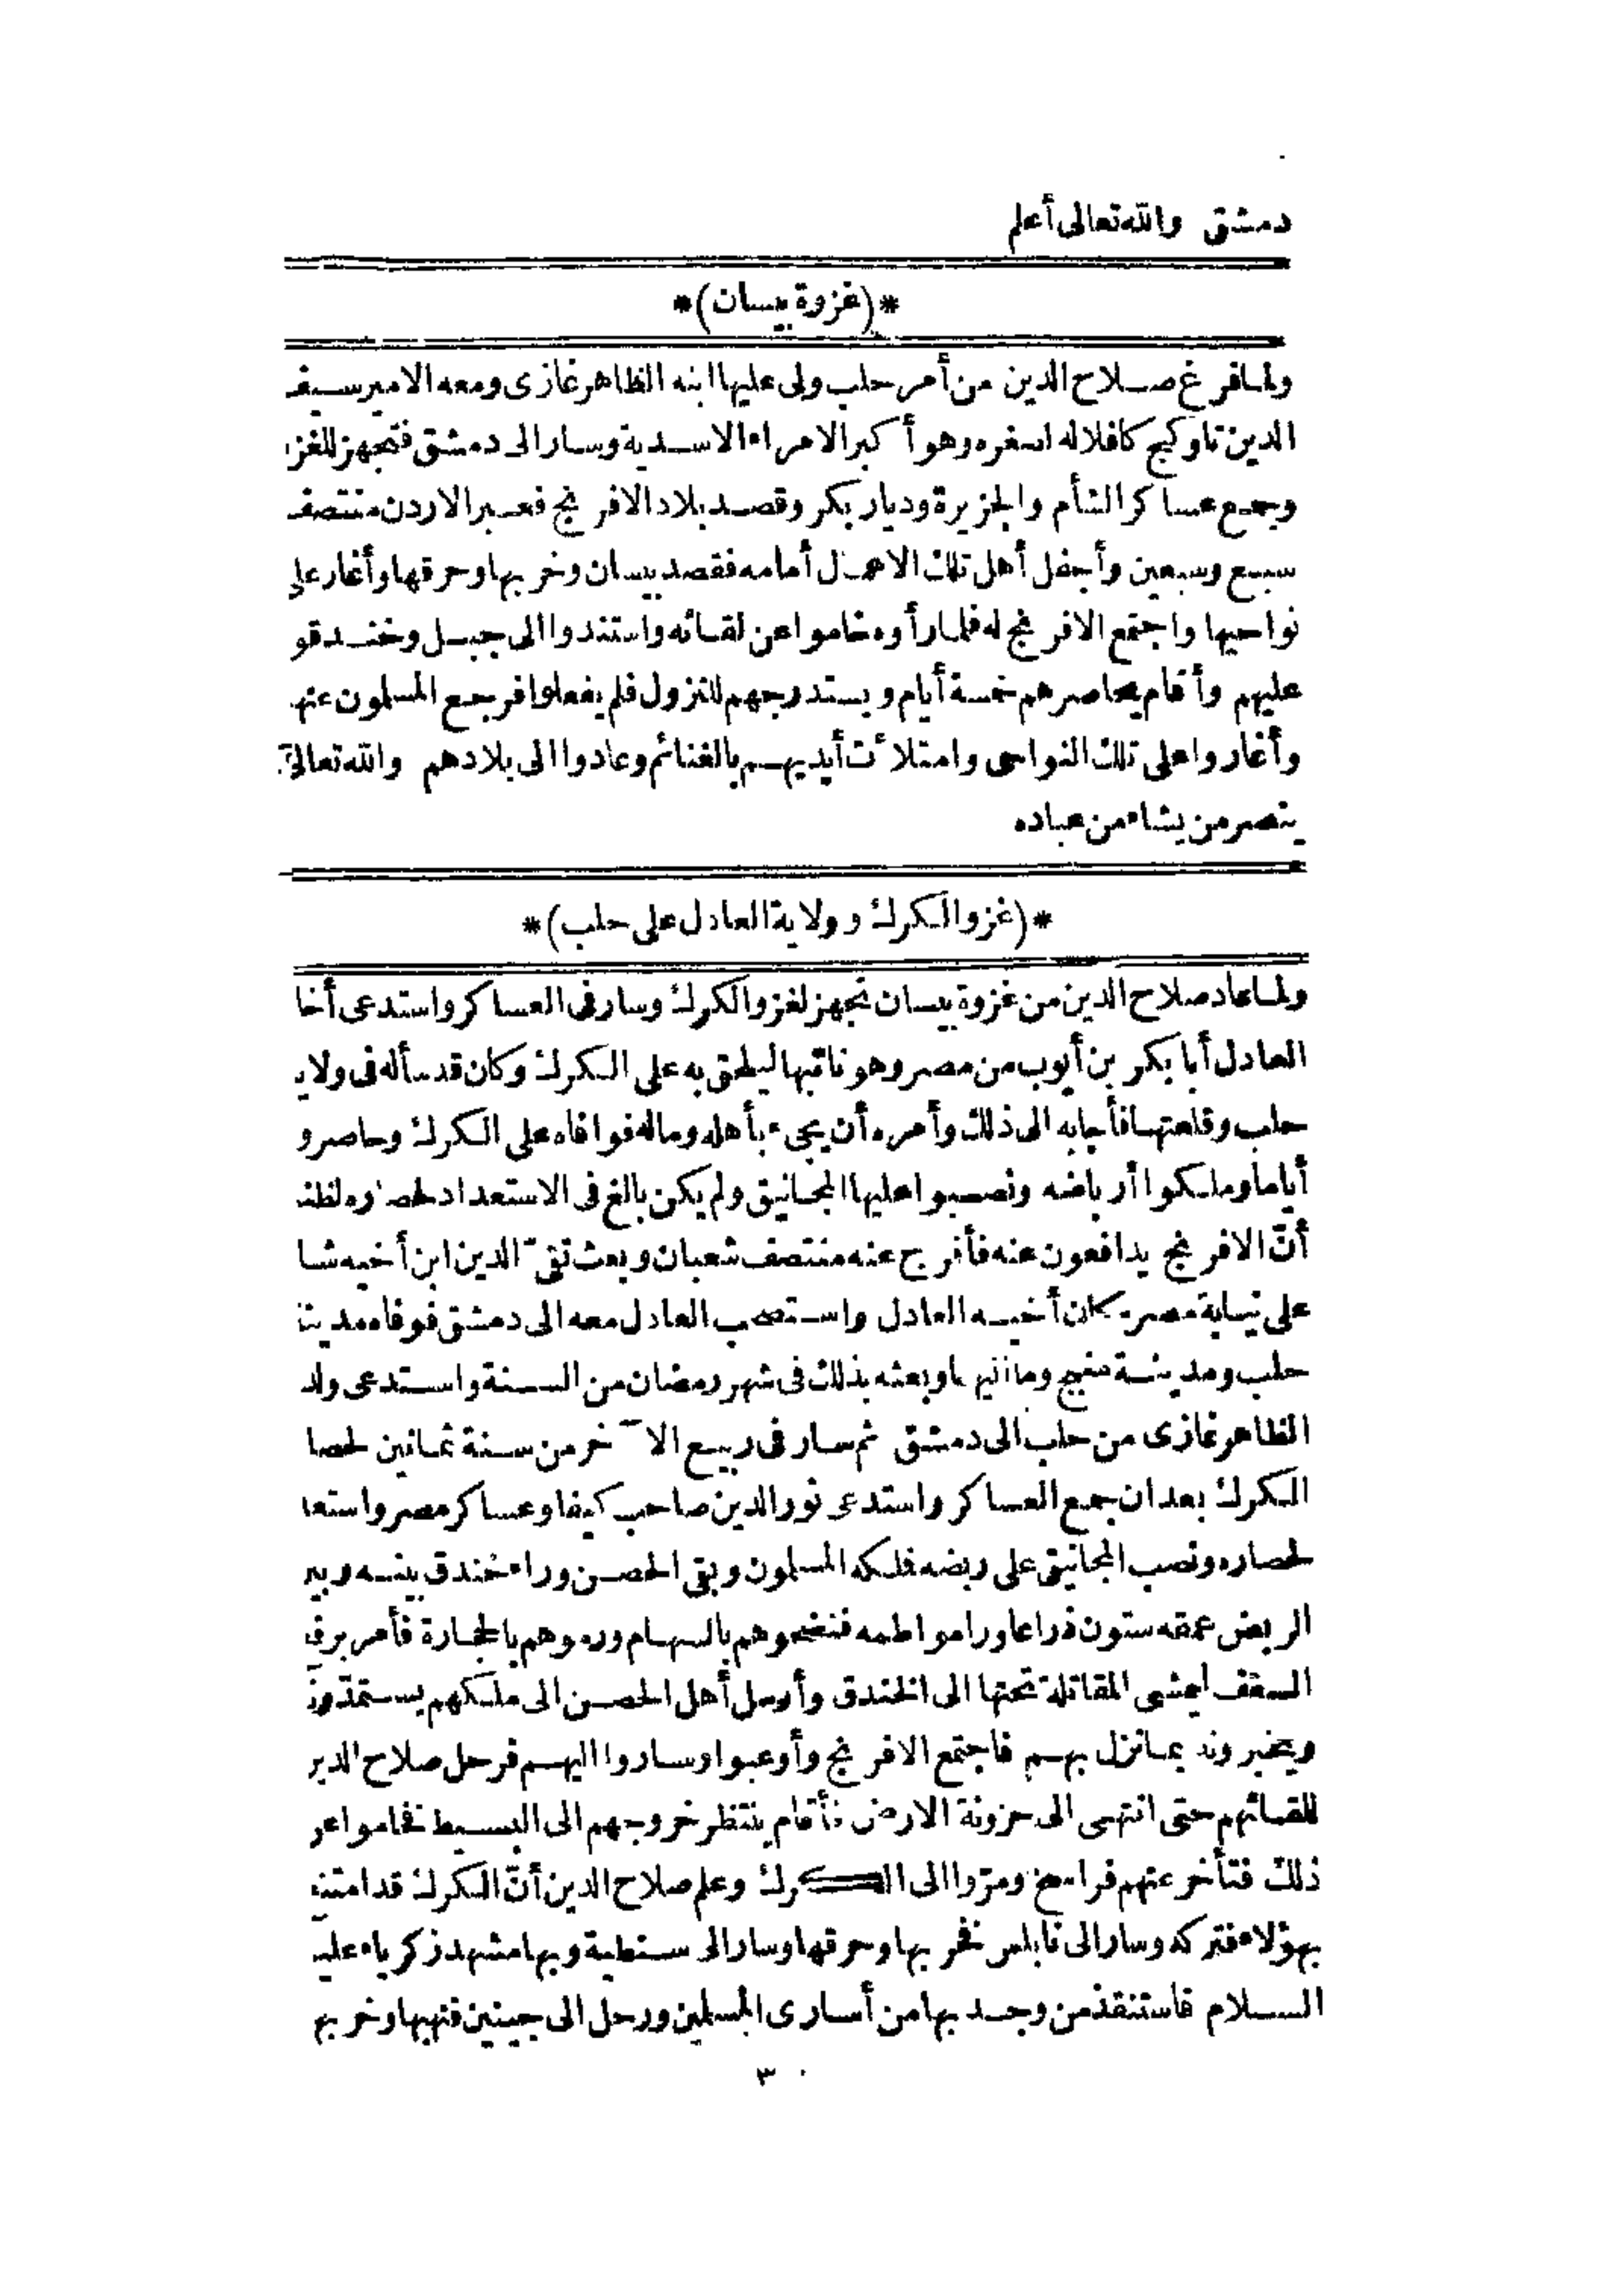 دمشق والله تعالى أعلم
*(غزوة بيسان)*
ولما فرغ صلاح الدين من أمر حلب ولى عليها ابنه الظاهر غازى ومعه الامير سيف
الدين تاوكيج كافلا له لصغره وهو أكبر الامراء الاسدية وسار الى دمشق فتجهز للغز
وجمع عساكر الشأم والجزيرة وديار بكر وقصد بلاد الافرنج فعبر الاردن منتصف
سبع وسبعين وأجفل أهل تلك الاعمال أمامه فقصد بيسان وخربها وحرقها وأغار على
نواحيها واجتمع الافرنج له فلما رأوه خاموا عن لقائه واستندوا الى جبل وخندقو
عليهم وأقام يحاصرهم خمسة أيام ويستدرجهم للنزول فلم يفعلوا فرجع المسلمون عنه
وأغاروا على تلك النواحى وامتلأت أيديهم بالغنائم وعادوا الى بلادهم والله تعالى
ينصر من يشاء من عباده
*(غزو الكرك وولاية العادل على حلب)*
ولما عاد صلاح الدين من غزوة بيسان تجهز لغزو الكرك وسار فى العساكر واستدعى أخا
العادل أبا بكر بن أيوب من مصر وهو نائبها ليلحق به على الكرك وكان قد سأله فى ولاي
حلب وقلعتها فأجابه الى ذلك وأمره أن يجىء بأهله وماله فوافاه على الكرك وحاصرو
أياما وملكوا أرباضه ونصبوا عليها المجانيق ولم يكن بالغ فى الاستعداد لحصاره لظنه
أنّ الافرنج يدافعون عنه فأفرج عنه منتصف شعبان وبعث تقىّ الدين ابن أخيه شا
على نيابة مصر مكان أخيه العادل واستصحب العادل معه الى دمشق فوفاه مدينة
حلب ومدينة منبج وما اليها وبعثه بذلك فى شهر رمضان من السنة واستدعى ولد
الظاهر غازى من حلب الى دمشق ثم سار فى ربيع الآخر من سنة ثمانين لحصا
الكرك بعد ان جمع العساكر واستدعى نور الدين صاحب كيفا وعساكر مصر واستعد
لحصاره ونصب المجانيق على ربضه فملكه المسلمون وبقى الحصن وراء خندق بينه وبين
الربض عمقه ستون ذراعا وراموا طمه فنضحوهم بالسهام ورموهم بالحجارة فأمر برفع
السقف ليمشى المقاتلة تحتها الى الخندق وأرسل أهل الحصن الى ملكهم يستمدّونه
ويخبرونه بما نزل بهم فاجتمع الافرنج وأوعبوا وساروا اليهم فرحل صلاح الدين
للقائهم حتى انتهى الى حزونة الارض فأقام ينتظر خروجهم الى البسيط فخاموا عن
ذلك فتأخر عنهم فراسخ ومرّوا الى الكرك وعلم صلاح الدين أنّ الكرك قد امتنع
بهؤلاء فتركه وسار الى نابلس فخربها وحرقها وسار الى سنطية وبها مشهد زكرياء عليه
السلام فاستنقذ من وجد بها من أسارى المسلمين ورحل الى جينين فنهبها وخربه
٣٠